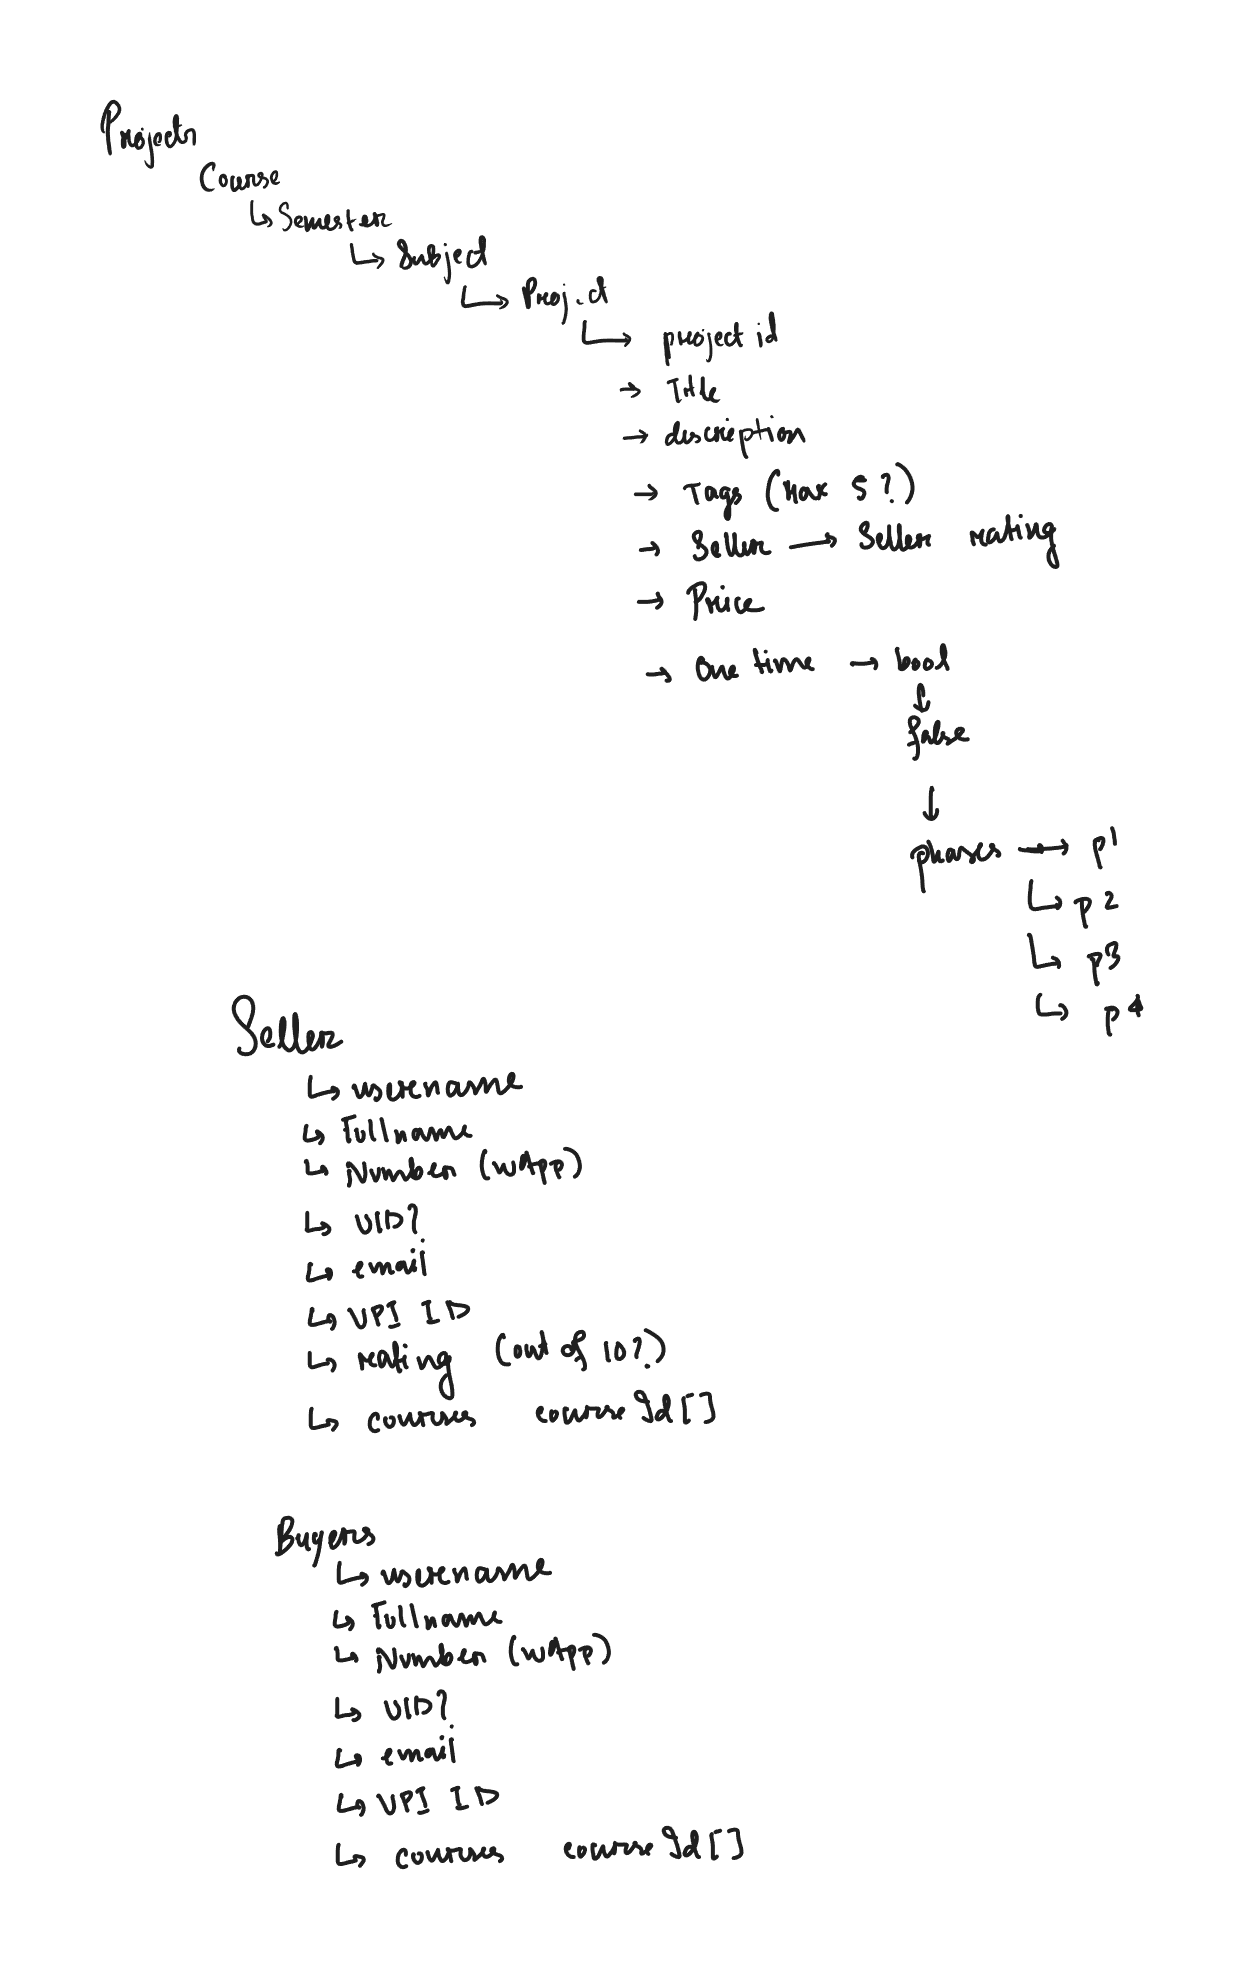 Projects
Course
↳ Semester
↳ Subject
↳ Project
↳ project id
→ Title
→ description
→ Tags (Max 5?)
→ Seller → Seller rating
→ Price
→ One time → bool
↓
false
↓
phases → p1
↳ p2
↳ p3
↳ p4
Seller
↳ username
↳ Fullname
↳ Number (wApp)
↳ UID?
↳ email
↳ UPI ID
↳ rating (out of 10?)
↳ courses courseId[]
Buyers
↳ username
↳ Fullname
↳ Number (wApp)
↳ UID?
↳ email
↳ UPI ID
↳ courses courseId[]